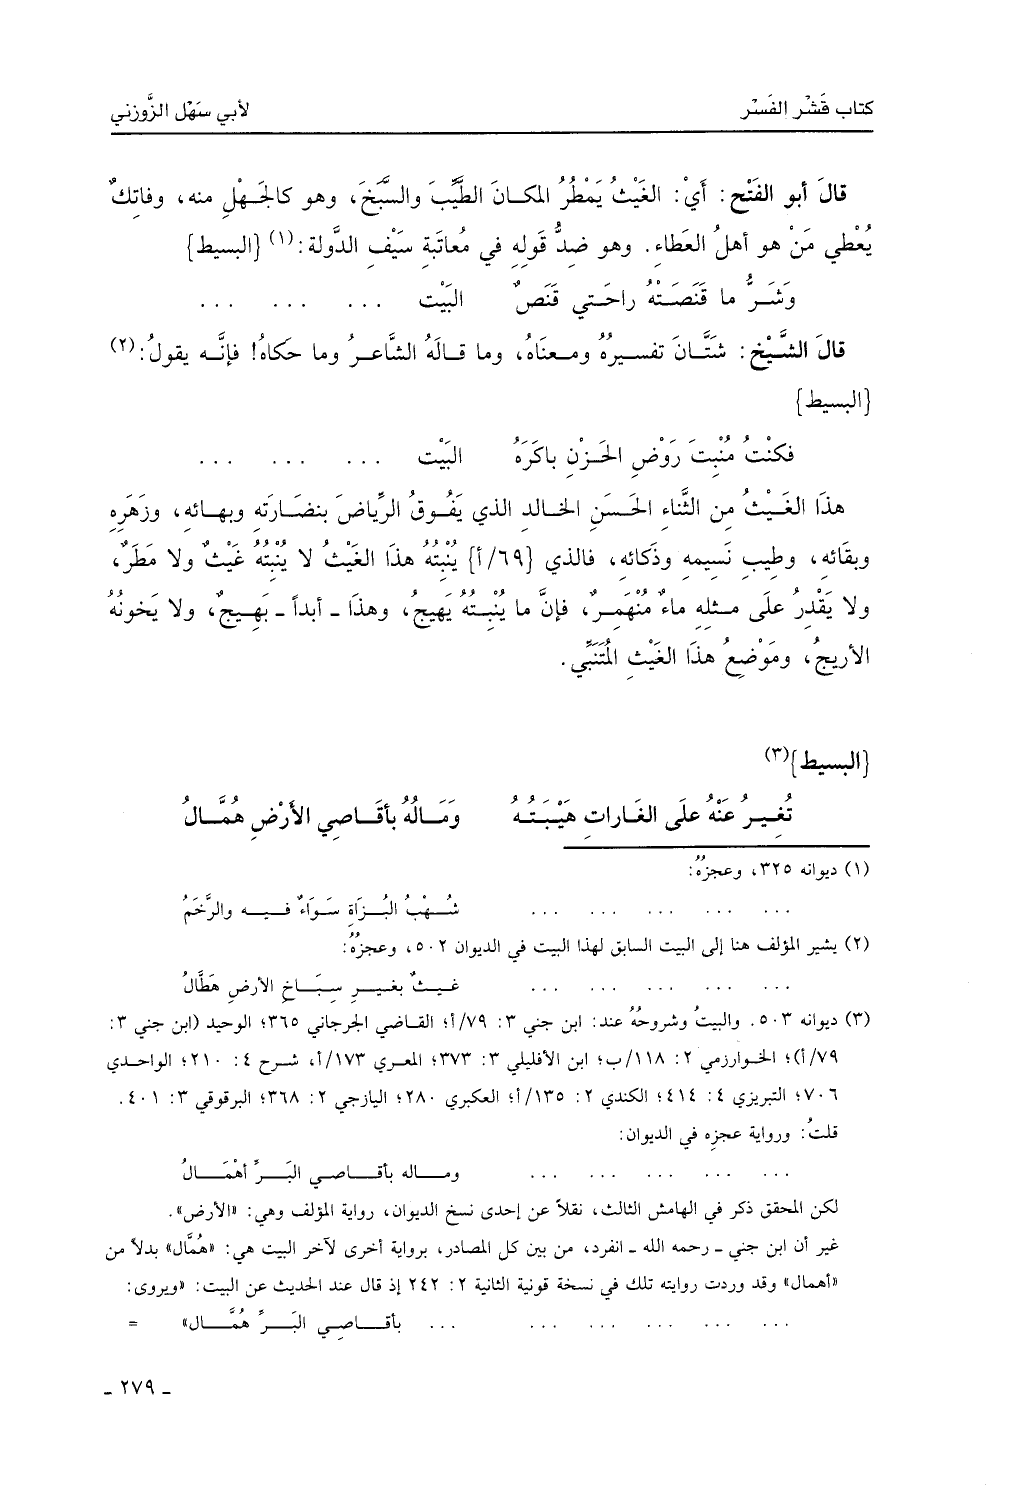 كتاب قَشْر الفَسْر لأبي سَهْل الزَّوْزني
قالَ أبو الفَتْح: أَيْ: الغَيْثُ يَمْطُرُ المكـانَ الطَّيِّبَ والسَّبَخَ، وهو كالجَهْلِ منه، وفاتكٌ
يُعْطي مَنْ هو أهلُ العَطاءِ. وهو ضدُّ قَولِهِ في مُعاتَبةِ سَيْفِ الدَّولة:(١) {البسيط}
وَشَـرُّ ما قَنَصَـتْهُ راحَـتي قَنَصٌ البَيْت ... ... ...
قالَ الشَّيْخ: شَتَّـانَ تفسيرُهُ ومـعناهُ، وما قـالَهُ الشَّاعـرُ وما حكاهُ! فإنَّـه يقولُ:(٢)
{البسيط}
فكنْتُ مُنْبِتَ رَوْضِ الحَـزْنِ باكَرَهُ البَيْت ... ... ...
هذَا الغَيْثُ من الثَّناءِ الحَسَنِ الخالدِ الذي يَفُوقُ الرِّياضَ بنضَارَتهِ وبهـائهِ، وزهَرِهِ
وبقَائهِ، وطيبِ نَسيمهِ وذَكائهِ، فالذي {٦٩/أ} يُنْبتُهُ هذَا الغَيْثُ لا يُنْبتُهُ غَيْثٌ ولا مَطَرٌ،
ولا يَقْدِرُ علَى مـثلِهِ ماءٌ مُنْهَمِرٌ، فإنَّ ما يُنْبـتُهُ يَهيجُ، وهذَا ـ أبداً ـ بَهيجٌ، ولا يَخونُهُ
الأريجُ، ومَوْضعُ هذَا الغَيْثِ المُتَنَبِّي.
{البسيط}(٣)
تُغيـرُ عَنْهُ علَى الغَاراتِ هَيْبَتُـهُ وَمَـالُهُ بأقَـاصِي الأَرْضِ هُمَّـالُ
(١) ديوانه ٣٢٥، وعجزُهُ:
... ... ... ... ... شُـهْبُ البُـزَاةِ سَـوَاءٌ فـيـه والرَّخَمُ
(٢) يشير المؤلف هنا إلى البيت السابق لهذا البيت في الديوان ٥٠٢، وعجزُهُ:
... ... ... ... ... غـيـثٌ بغـيـرِ سِبَـاخِ الأرضِ هَطَّالُ
(٣) ديوانه ٥٠٣. والبيتُ وشروحُهُ عند: ابن جني ٣: ٧٩/أ؛ القـاضي الجرجاني ٣٦٥؛ الوحيد (ابن جني ٣:
٧٩/أ)؛ الخـوارزمي ٢: ١١٨/ب؛ ابن الأفليلي ٣: ٣٧٣؛ المعري ١٧٣/أ، شـرح ٤: ٢١٠؛ الواحـدي
٧٠٦؛ التبريزي ٤: ٤١٤؛ الكندي ٢: ١٣٥/أ؛ العكبري ٢٨٠؛ اليازجي ٢: ٣٦٨؛ البرقوقي ٣: ٤٠١.
قلتُ: ورواية عجزِه في الديوان:
... ... ... ... ... ومـــالـه بأقــاصــي البَــرِّ أهْمَــــالُ
لكن المحقق ذكر في الهامش الثالث، نقلاً عن إحدى نسخ الديوان، رواية المؤلف وهي: «الأرض».
غير أن ابن جني ـ رحمه الله ـ انفرد، من بين كل المصادر، برواية أخرى لآخر البيت هي: «هُمَّال» بدلاً من
«أهمال» وقد وردت روايته تلك في نسخة قونية الثانية ٢: ٢٤٢ إذ قال عند الحديث عن البيت: «ويروى:
... ... ... ... ... ... بأقــاصــي البَــرِّ هُمَّــال» =
ـ ٢٧٩ ـ